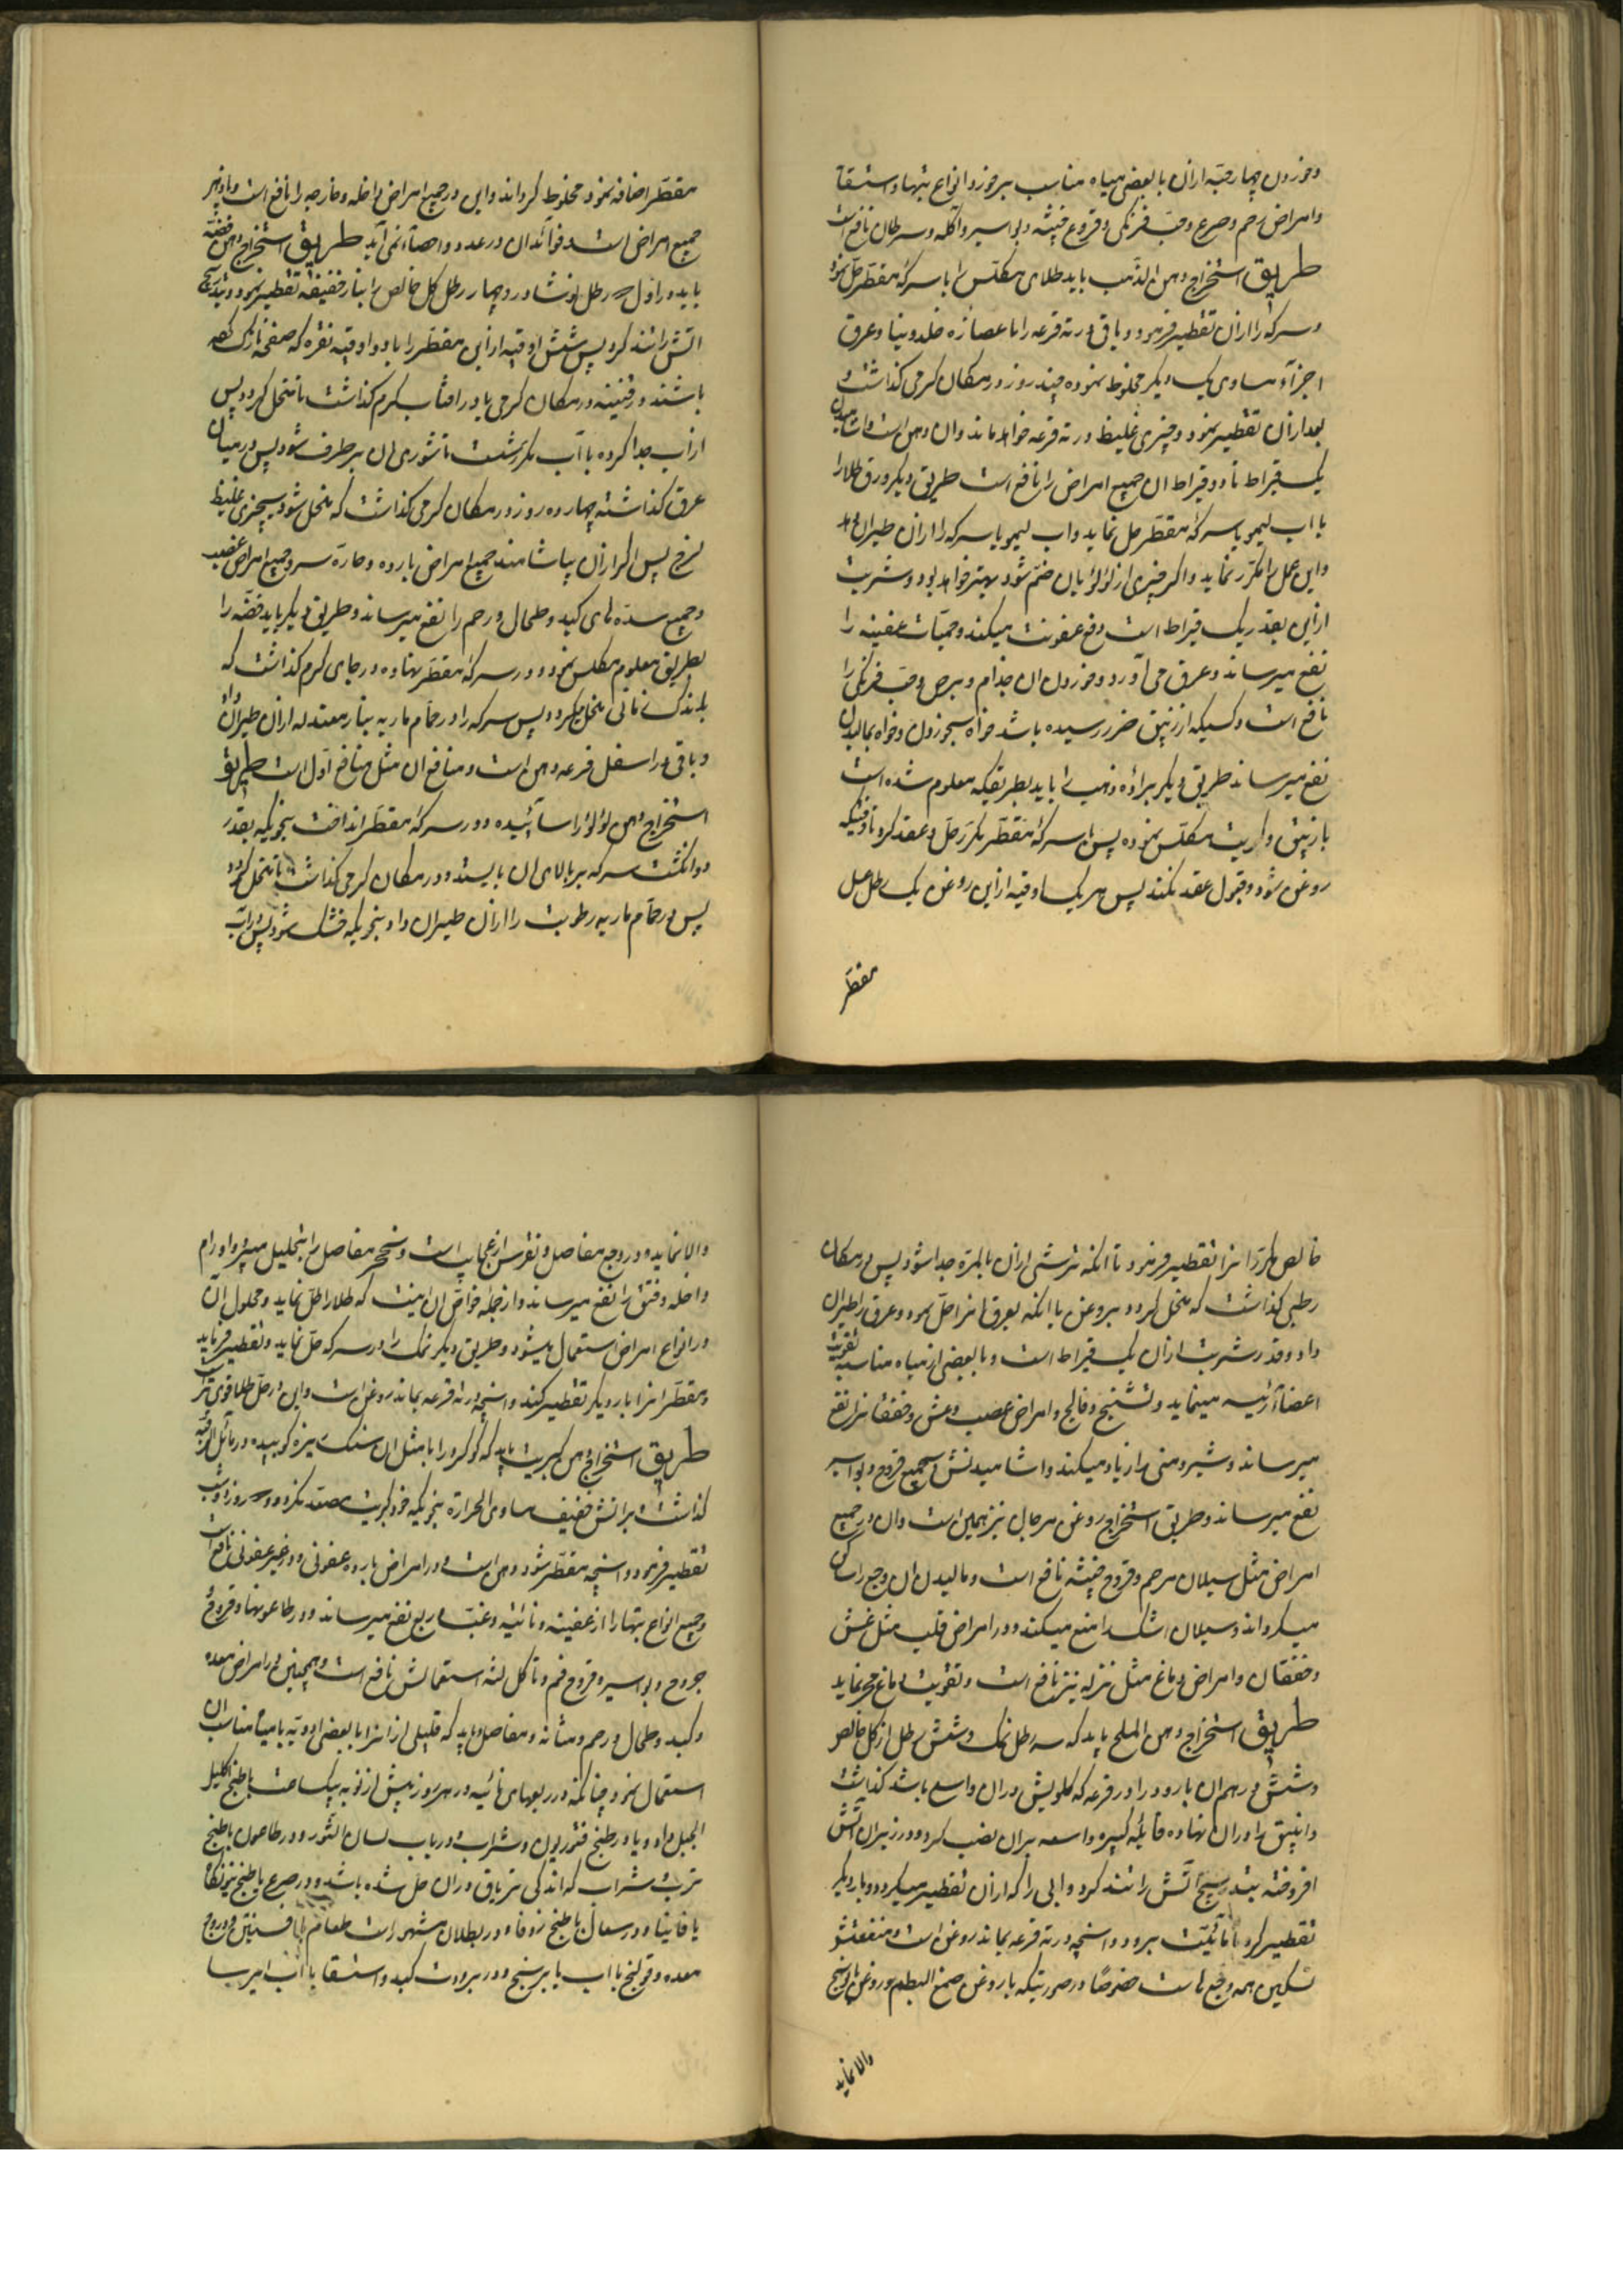 وخوردن چهار حبّه ازان با بعضی میاه مناسب بر خوردن انواع تبها و استسقا
و امراض رحم و صرع و حبّ فرنکی و قروح خبیثه و بواسیر و آکله و سرطان نافع است
طریق استخراج دهن الذّهب باید طلای مکلّس را با سرکهٔ مقطّر حلّ نمود
و سرکه را ازان تقطیر فرمود و باقی در ته قرعه را با عصارهٔ خلدونیا و عرق
اجزآء مساوی یک دیکر مخلوط نموده چند روز در مکان کرمی کذاشت و
بعد ازان تقطیر نمود و چیزی غلیظ در ته قرعه خواهد ماند و ان دهن است و اشامیدن
یک قیراط تا دو قیراط ان جمیع امراض را نافع است طریق دیکر ورق طلا را
با اب لیمو یا سرکهٔ مقطّر حل نماید و اب لیمو یا سرکه را ازان طیران دهد
و این عمل را مکرّر نماید و اکر چیزی از لؤلؤ بان ضمّ شود بهتر خواهد بود و شربت
ازاین بقدر یک قیراط است دفع عفونت میکند و حمیّات عفنیه را
نفع میرساند و عرق می آورد و خوردن ان جذام و برص و حبّ فرنکی را
نافع است و کسیکه از زیبق ضرر رسیده باشد خواه بخوردن و خواه بمالیدن
نفع میرساند طریق دیکر برادهٔ ذهب را باید بطریقیکه معلوم شده است
با زیبق و کبریت مکلّس نموده پس با سرکهٔ مقطّر مکرّر حلّ و عقد کرد تا وقتیکه
روغن شود و قبول عقد نکند پس هر یک اوقیه ازاین روغن یک رطل عسل
مقطّر
مقطّر اضافه نمود مخلوط کرداند و این در جمیع امراض داخله و خارجه را نافع است و پادزهر
جمیع امراض است و فوائد ان در عدد و احصاء نمی آید طریق استخراج دهن فضّه
باید در اوّل سه رطل نوشادر و چهار رطل کل خالص را بنار خفیفه تقطیر نمود و بتدریج
اتش را تند کرد پس شش اوقیه ازاین مقطّر را با دو اوقیه نقره که صفحه نازک کرده
باشند در قنینه در مکان کرمی یا در افتاب کرم کذاشت تا منحل کردد پس
از اب جدا کرده با آب مکرّر شست تا شوری ان بر طرف شود پس در میان
عرق کذاشته چهارده روز در مکان کرمی کذاشت که منحل شود بچیزی غلیظ
لزج پس اکر ازان بیاشامند جمیع امراض بارده و حارّه سر و جمیع امراض عصب
و جمیع سدّه های کبد و طحال و رحم را نفع میرساند و طریق دیکر باید فضّه را
بطریق معلوم مکلس نمود و در سرکهٔ مقطّر نهاده در جای کرم کذاشت که
باندک زمانی منحل میکردد پس سرکه را در حمّام ماریه بنار معتدله ازان طیران داد
و باقی در اسفل قرعه دهن است و منافع ان مثل منافع اوّل است طریق
استخراج دهن لؤلؤ را سائیده در سرکهٔ مقطّر انداخت بنحویکه بقدر
دو انکشت سرکه بر بالای ان بایستد و در مکان کرمی کذاشت تا منحل کردد
پس در حمّام ماریه رطوبت را ازان طیران داد بنحویکه خشک شود پس در آب
خالص مکرّر انرا تقطیر فرمود تا انکه ترشی ازان بالمرّه جدا شود پس در مکان
رطبی کذاشت که منحل کردد بروغن یا انکه بعرق انرا حلّ نمود و عرق را طیران
داد و قدر شربت ازان یک قیراط است و با بعضی از میاه مناسبه تقویت
اعضاء رئیسه مینماید و تشنج و فالج و امراض عصب و غش و خفقانرا نفع
میرساند و شیر و منی را زیاد میکند و اشامیدنش بجمیع قروح و بواسیر
نفع میرساند و طریق استخراج روغن مرجان نیز همین است و ان در جمیع
امراض مثل سیلان رحم و قروح خبیثه نافع است و مالیدن ان وجع را ساکن
میکرداند و سیلان اشک را منع میکند و در امراض قلب مثل غش
و خفقان و امراض دماغ مثل نزله نیز نافع است و تقویت دماغ هم نماید
طریق استخراج دهن الملح باید که سه رطل نمک و شش رطل از کل خالص
و شش درهم ان بارود را در قرعه که کلویش دران واسع باشد کذاشت
و انبیق را دران نهاده قابلهٔ کبیره واسعه بران نصب کرد و در زیر ان آتش
افروخته بتدریج آتش را تند کرد و ابی را که ازان تقطیر میکردد بار دیکر
تقطیر کرد تا مائیّت برود و انچه در ته قرعه بماند روغن است و منفعتش
تسکین همه وجع هاست خصوصًا در صورتیکه با روغن صمغ البطم و روغن بابونج
والا نماید
والا نماید و در وجع مفاصل و نقرس از عجایب است و تحجّر مفاصل را بتحلیل میبرد و اورام
داخله و فتق را نفع میرساند و از جمله خواصّ ان اینست که طلا را حلّ نماید و محلول ان
در انواع امراض استعمال میشود و طریق دیکر نمک را در سرکه حلّ نماید و تقطیر فرماید
و مقطّر انرا بار دیکر تقطیر کند و انچه در ته قرعه بماند روغن است و این در حلّ طلا قوی تر است
طریق استخراج دهن کبریت باید که کوکرد را با مثل ان سنک ریزه کوبیده در مائل الرقبه
کذاشت بر اتش خفیف مساوی الحراره بنحویکه خود کبریت مصعّد نکردد و سه روز و شب
تقطیر فرمود و انچه مقطّر شود دهن است و در امراض بارده عفونی و غیر عفونی نافع است
و جمیع انواع تبها را از عفنیه و نائبه و غبّ و ربع نفع میرساند و در طاعونها و قروح
جروح و بواسیر و قروح فم و تاکل لثه استعمالش نافع است و همچنین در امراض معده
و کبد و طحال و رحم و مثانه و مفاصل و باید که قلیلی از انرا با بعضی ادویه یا میاه مناسب ان
استعمال نمود چنانکه در ربعهای نائبه در هر روز پیش از نوبه بیکساعت با طبخ اکلیل
الجبل داد و یا در طبخ قنطوریون و شراب و در باب لسان الثور و در طاعون با طبخ
ترب و شراب که اندکی تریاق دران حل شده باشد و در صرع با طبخ بزنکاه
یا فانیا و در سعال با طبخ زوفا و در بطلان شهوت طعام با افسنتین و در وجع
معده و قولنج با اب بابرنج و در برودت کبد و استسقا با اب ایرسا